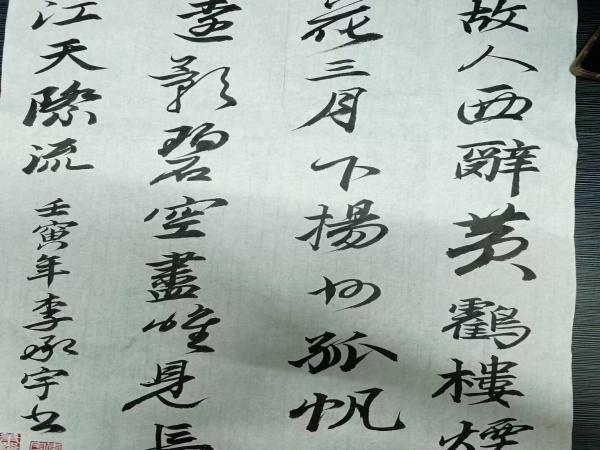 故人西辭黄鶴樓煙
花三月下揚州孤帆
遠影碧空盡唯見長
江天際流
壬寅年李承宇书